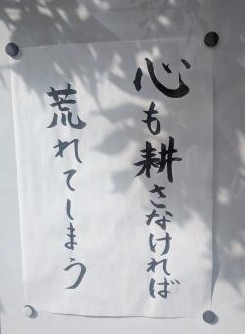 心も耕さなければ
荒れてしまう